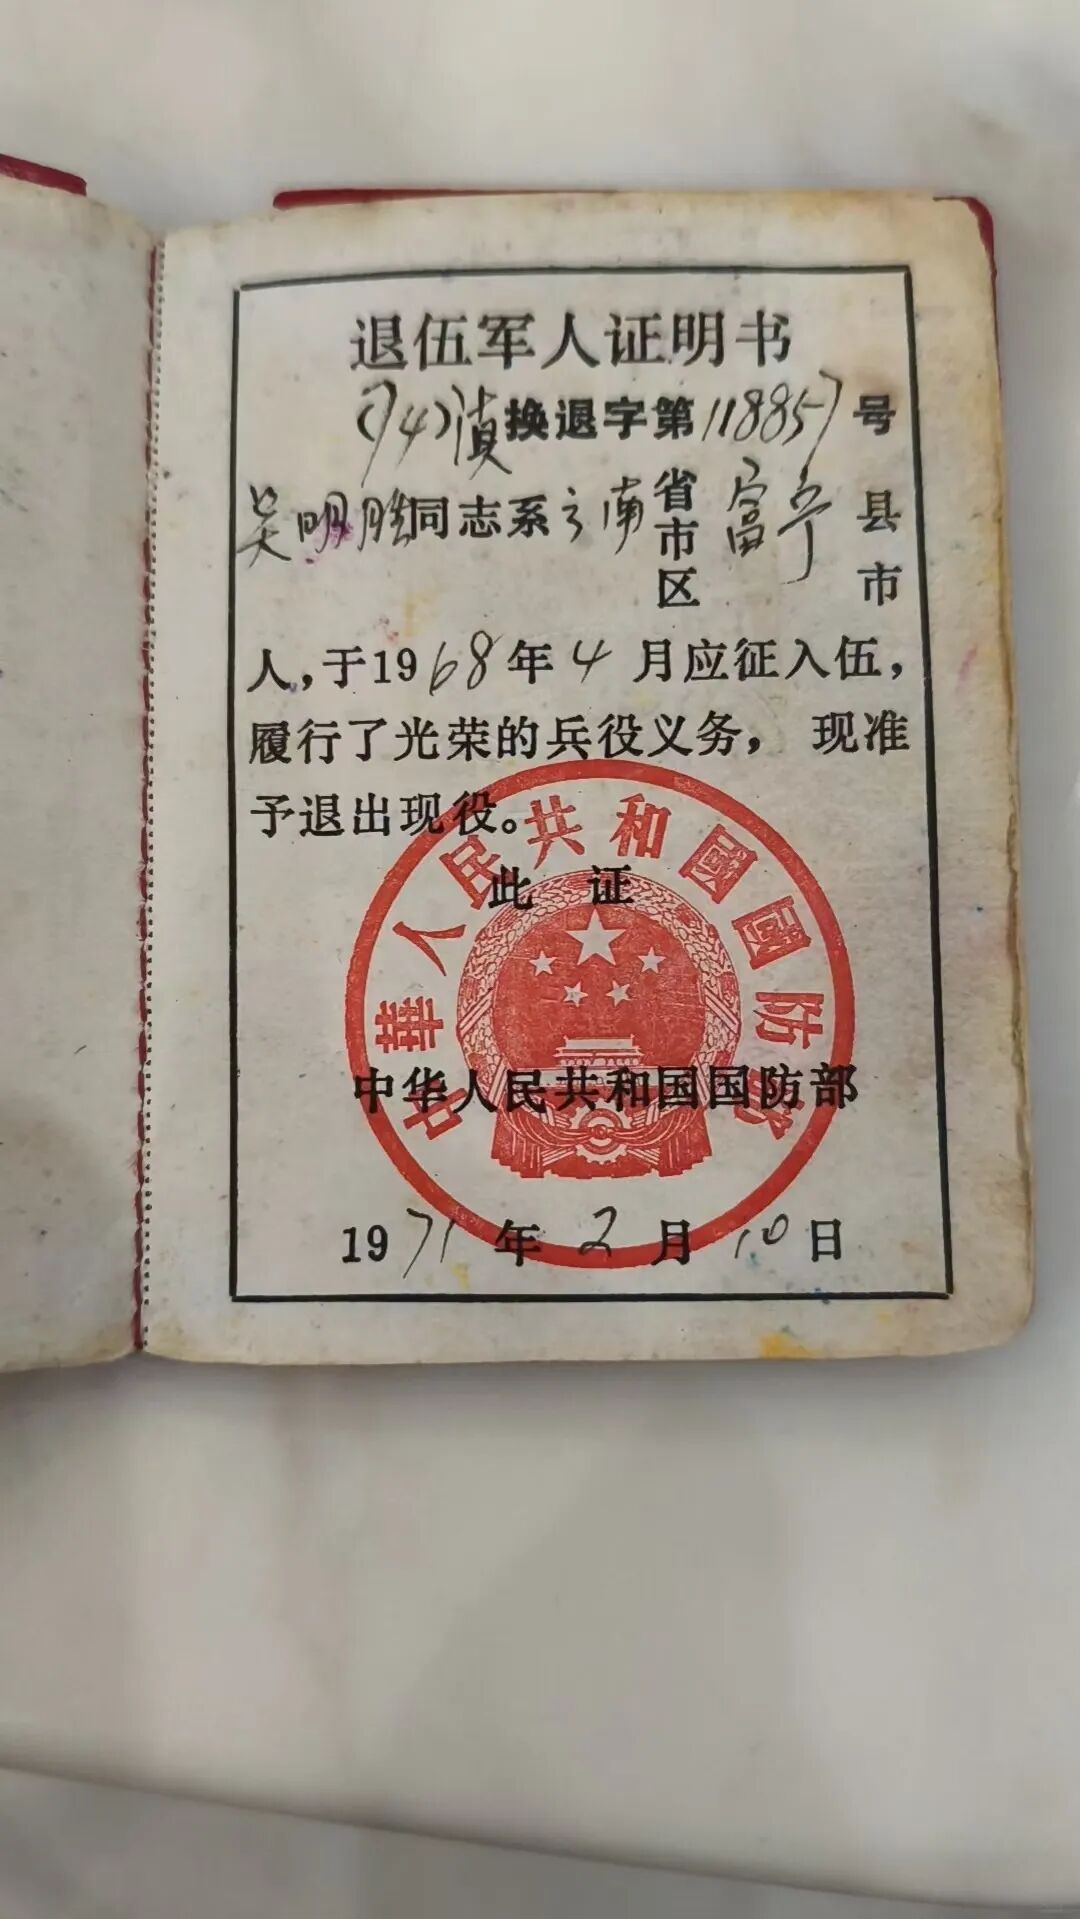 退伍军人证明书
(74)滇换退字第118857号
吴明胜同志系云南省市区富宁县市
人，于1968年4月应征入伍，
履行了光荣的兵役义务， 现准
予退出现役。
此 证
中华人民共和国国防部
1971年2月10日
中華人民共和國國防部